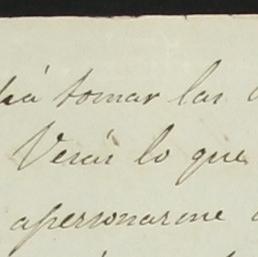 há tomar las
Verás lo que
apersonarme